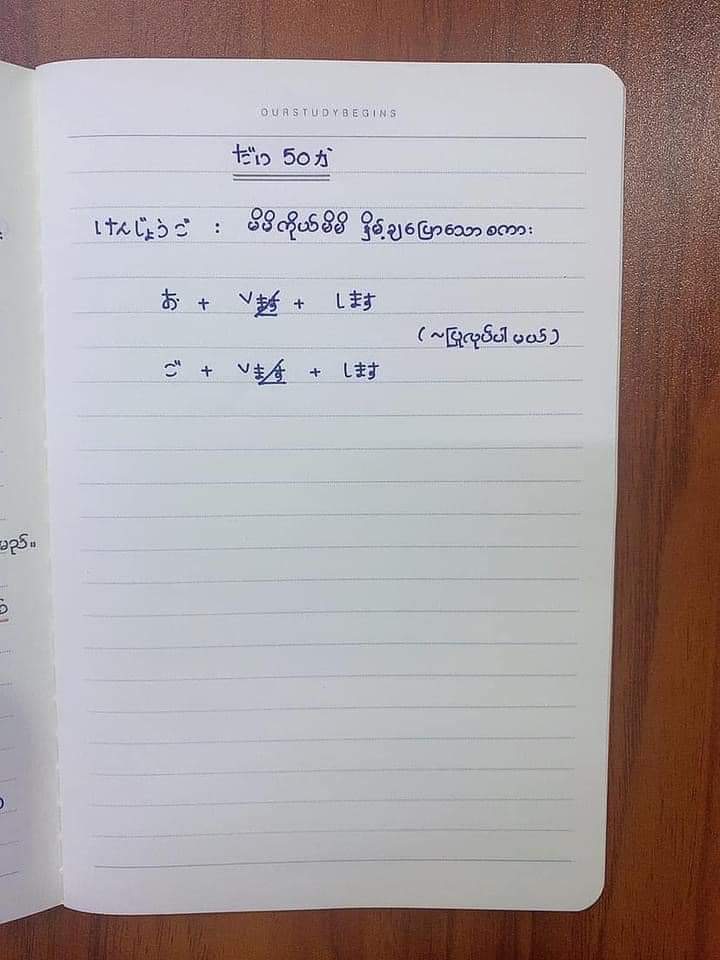 OURSTUDYBEGINS
だい 50 か
けんじょうご : မိမိကိုယ်မိမိ နှိမ့်ချပြောသောစကား
お + Vます + します
(~ပြုလုပ်ပါမယ်)
ご + Vます + します
မည်။